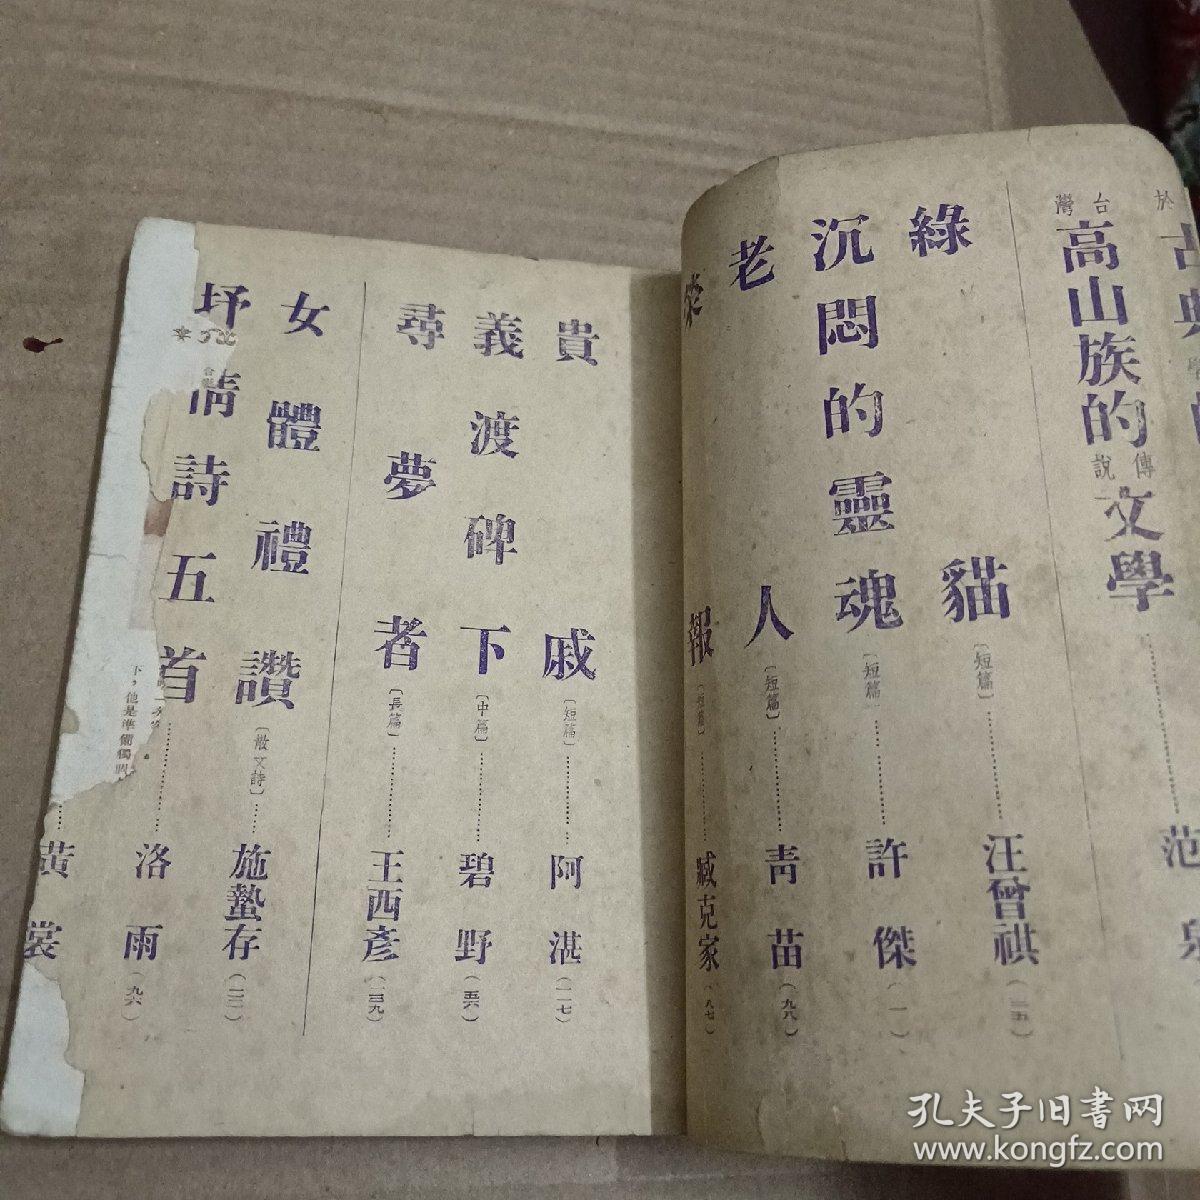 台灣高山族的傳說文學……范泉
綠貓〔短篇〕……汪曾祺（三五）
沉悶的靈魂〔短篇〕……許傑（一）
老人〔短篇〕……青苗（九八）
榮報〔短篇〕……臧克家（八七）
貴戚〔短篇〕……阿湛（一一七）
義渡碑下〔中篇〕……碧野（五六）
尋夢者〔長篇〕……王西彥（一三九）
女體禮讚〔散文詩〕……施蟄存
抒情詩五首……洛雨（九六）
黃裳
下，他是準備獨
孔夫子旧书网
www.kongfz.com